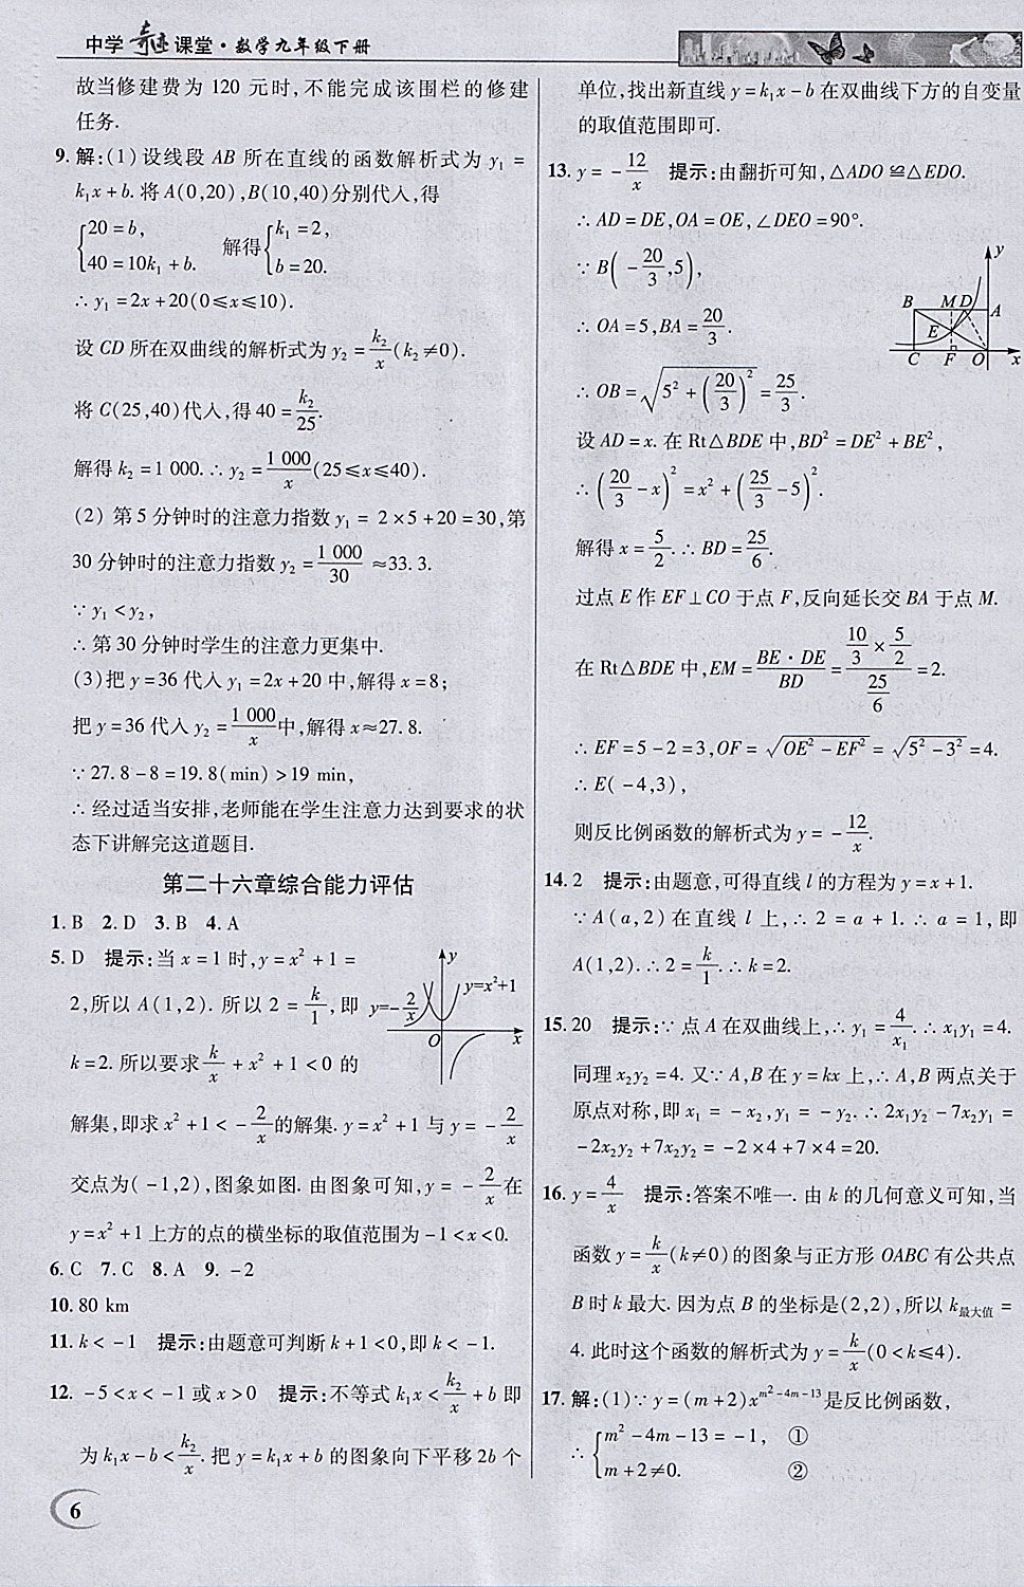 中学奇迹课堂·数学九年级下册
故当修建费为 120 元时,不能完成该围栏的修建
任务.
9. 解:(1)设线段 AB 所在直线的函数解析式为 y₁ =
k₁x + b. 将 A(0,20),B(10,40)分别代入,得
{20 = b, 40 = 10k₁ + b. 解得 {k₁ = 2, b = 20.
∴ y₁ = 2x + 20(0≤x≤10).
设 CD 所在双曲线的解析式为 y₂ = k₂/x (k₂ ≠0).
将 C(25,40)代入,得 40 = k₂/25.
解得 k₂ = 1 000. ∴ y₂ = 1 000/x (25≤x≤40).
(2) 第 5 分钟时的注意力指数 y₁ = 2×5 + 20 = 30,第
30 分钟时的注意力指数 y₂ = 1 000/30 ≈33. 3.
∵ y₁ < y₂,
∴ 第 30 分钟时学生的注意力更集中.
(3)把 y = 36 代入 y₁ = 2x + 20 中,解得 x = 8;
把 y = 36 代入 y₂ = 1 000/x 中,解得 x≈27. 8.
∵ 27. 8 - 8 = 19. 8(min) > 19 min,
∴ 经过适当安排,老师能在学生注意力达到要求的状
态下讲解完这道题目.
第二十六章综合能力评估
1. B 2. D 3. B 4. A
5. D 提示:当 x = 1 时,y = x² + 1 =
2,所以 A(1,2). 所以 2 = k/1,即
k = 2. 所以要求 k/x + x² + 1 < 0 的
y
y=x²+1
y=-2/x
O
x
解集,即求 x² + 1 < - 2/x 的解集. y = x² + 1 与 y = - 2/x
交点为( - 1,2),图象如图. 由图象可知,y = - 2/x 在
y = x² + 1 上方的点的横坐标的取值范围为 - 1 < x < 0.
6. C 7. C 8. A 9. - 2
10. 80 km
11. k < - 1 提示:由题意可判断 k + 1 < 0,即 k < - 1.
12. - 5 < x < - 1 或 x > 0 提示:不等式 k₁x < k₂/x + b 即
为 k₁x - b < k₂/x. 把 y = k₁x + b 的图象向下平移 2b 个
6
单位,找出新直线 y = k₁x - b 在双曲线下方的自变量
的取值范围即可.
13. y = - 12/x 提示:由翻折可知,△ADO ≌△EDO.
∴ AD = DE,OA = OE,∠DEO = 90°.
∵ B( - 20/3,5),
∴ OA = 5,BA = 20/3.
∴ OB = √(5² + (20/3)²) = 25/3.
y
B M D A
E
C F O x
设 AD = x. 在 Rt△BDE 中,BD² = DE² + BE²,
∴ (20/3 - x)² = x² + (25/3 - 5)².
解得 x = 5/2. ∴ BD = 25/6.
过点 E 作 EF⊥CO 于点 F,反向延长交 BA 于点 M.
在 Rt△BDE 中,EM = (BE·DE)/BD = (10/3 × 5/2)/(25/6) = 2.
∴ EF = 5 - 2 = 3,OF = √(OE² - EF²) = √(5² - 3²) = 4.
∴ E( - 4,3),
则反比例函数的解析式为 y = - 12/x.
14. 2 提示:由题意,可得直线 l 的方程为 y = x + 1.
∵ A(a,2)在直线 l 上,∴ 2 = a + 1. ∴ a = 1,即
A(1,2). ∴ 2 = k/1. ∴ k = 2.
15. 20 提示:∵ 点 A 在双曲线上,∴ y₁ = 4/x₁. ∴ x₁y₁ = 4.
同理 x₂y₂ = 4. 又∵ A,B 在 y = kx 上,∴ A,B 两点关于
原点对称,即 x₁ = - x₂,y₁ = - y₂. ∴ 2x₁y₂ - 7x₂y₁ =
- 2x₂y₂ + 7x₂y₂ = - 2×4 + 7×4 = 20.
16. y = 4/x 提示:答案不唯一. 由 k 的几何意义可知,当
函数 y = k/x (k≠0)的图象与正方形 OABC 有公共点
B 时 k 最大. 因为点 B 的坐标是(2,2),所以 k最大值 =
4. 此时这个函数的解析式为 y = k/x (0 < k≤4).
17. 解:(1)∵ y = (m + 2)x^(m² - 4m - 13) 是反比例函数,
∴ {m² - 4m - 13 = - 1, ①
m + 2≠0. ②